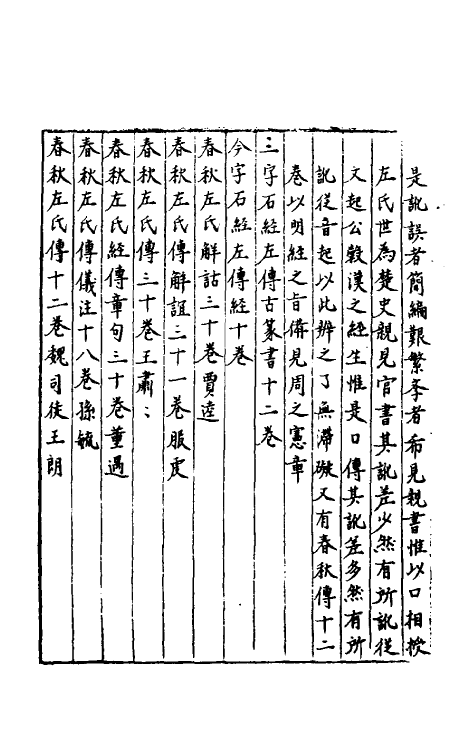 是訛誤者簡編艱繁學者希見親書惟以口相授
左氏世為楚史親見官書其訛差少然有所訛從
文起公穀漢之經生惟是口傳其訛差多然有所
訛從音起以此辨之了無滯礙又有春秋傳十二
卷以明經之旨備見周之憲章
三字石經左傳古篆書十二卷
今字石經左傳經十卷
春秋左氏解詁三十卷賈逵
春秋左氏傳解誼三十一卷服虔
春秋左氏傳三十卷王肅
春秋左氏經傳章句三十卷董遇
春秋左氏傳儀注十八卷孫毓
春秋左氏傳十二卷魏司徒王朗